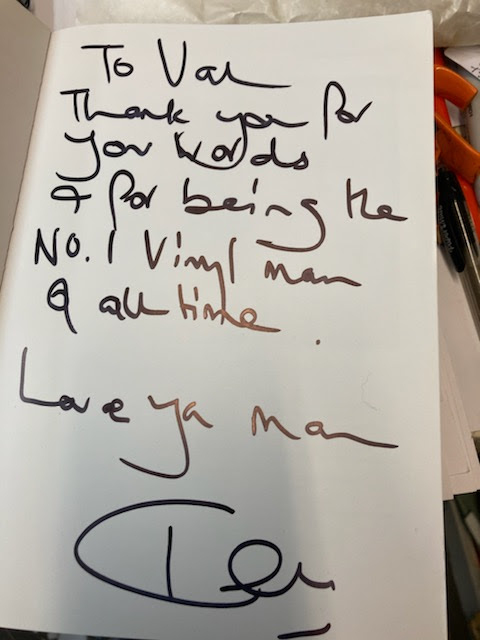 To Val
Thank you for
your words
& for being the
No. 1 Vinyl man
of all time.
Love ya man